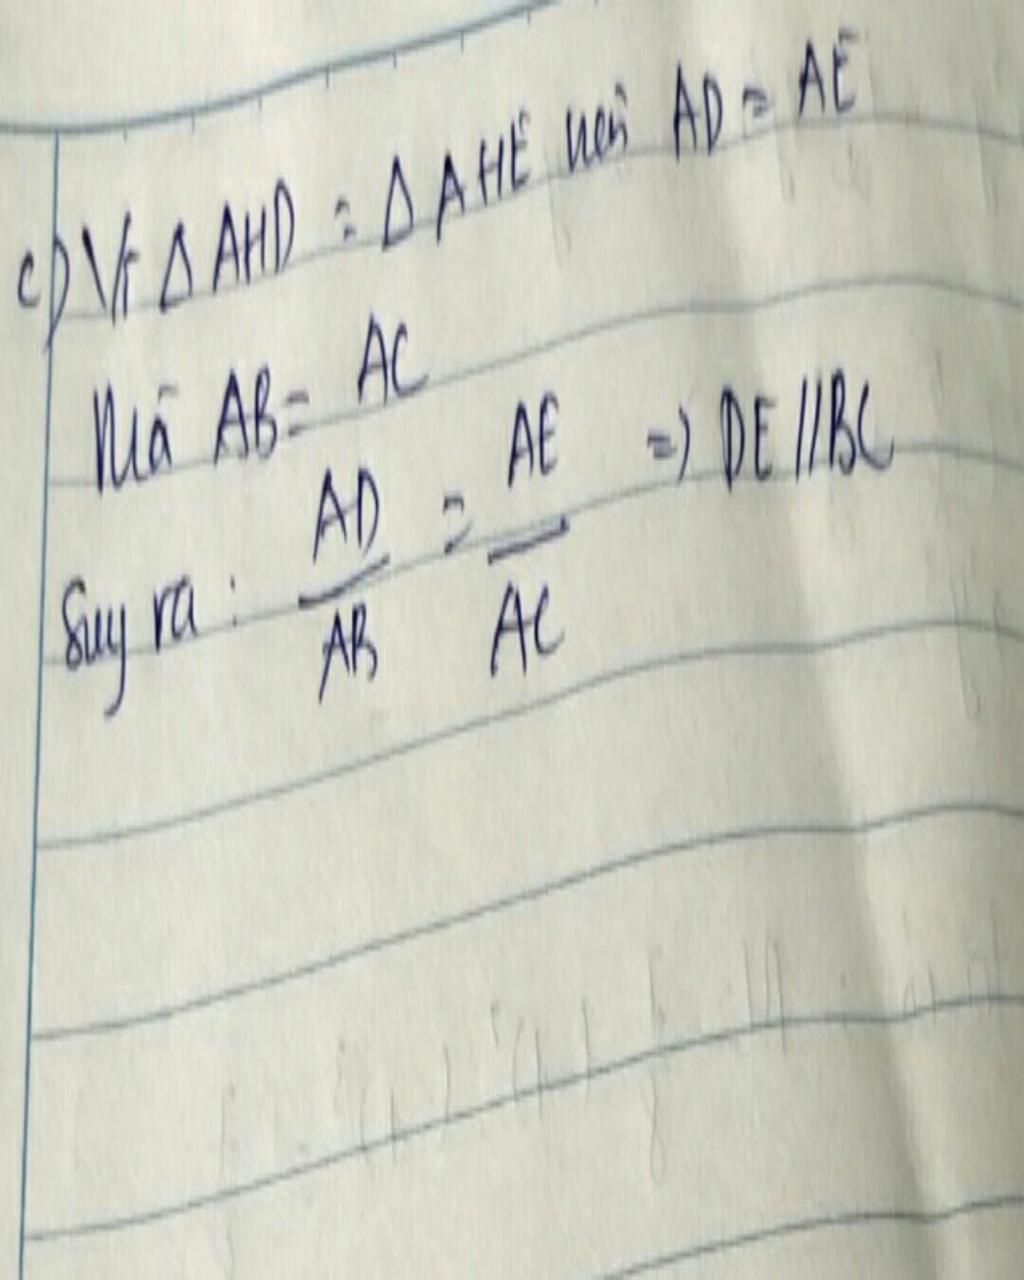 c) Vì Δ AHD = Δ AHE nên AD = AE
Mà AB = AC
Suy ra : AD/AB = AE/AC => DE // BC